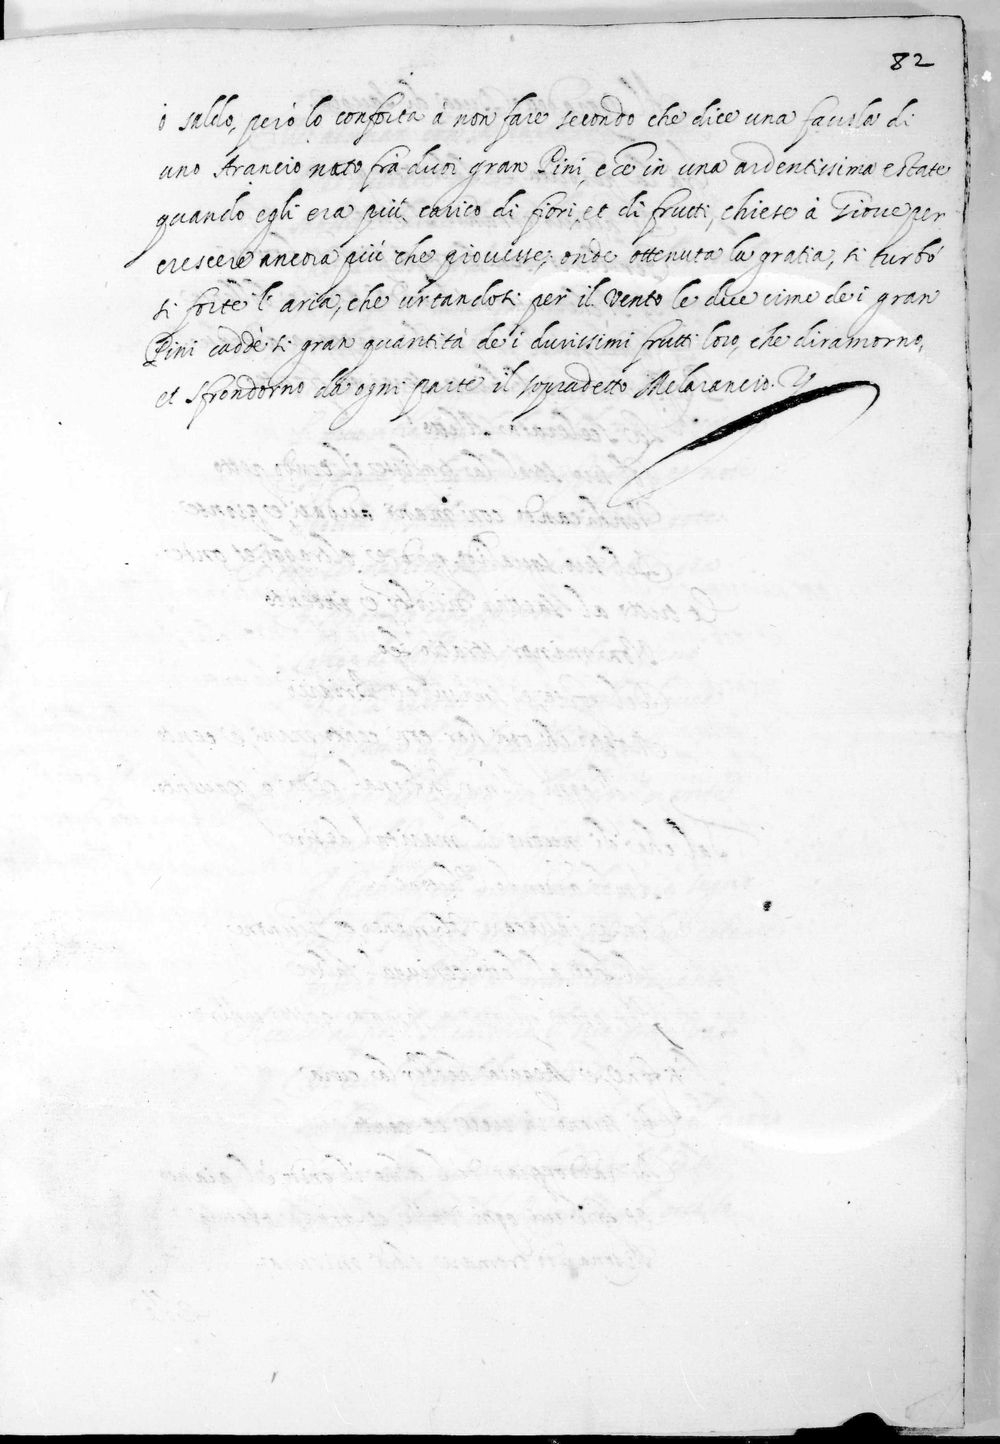 82
ò saldo, però lo conforta à non fare secondo che dice una favola di
uno Arancio nato frà duoi gran Pini, e ce in una ardentissima estate
quando egli era più carico di fiori, et di frutti, chiese à Giove per
crescere ancora più che piovesse; onde ottenuta la gratia, si turbò
si forte l'aria, che urtandosi per il vento le due cime dei gran
Pini caddè si gran quantità dei durissimi frutti loro, che diramorno,
et sfrondorno da ogni parte il sopradetto Melarancio.